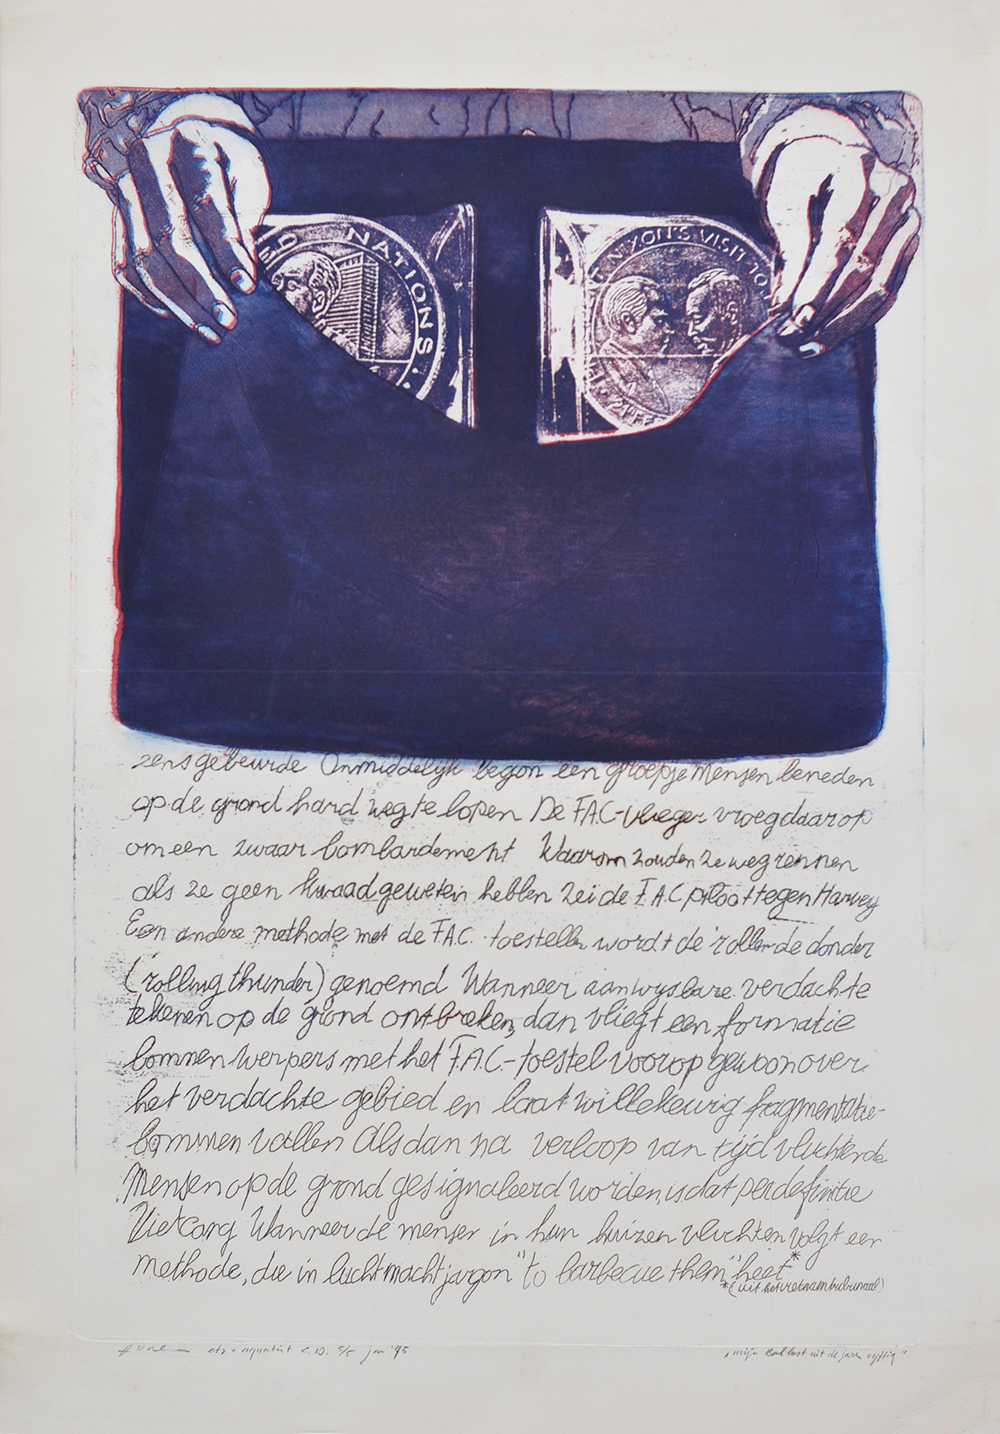 ED NATIONS.
T NIXON'S VISIT TO
zens gebeurde Onmiddelijk begon een groepje mensen beneden
op de grond hard weg te lopen De F.A.C-vlieger vroeg daarop
om een zwaar bombardement Waarom zouden ze wegrennen
als ze geen kwaad geweten hebben zei de F.A.C piloot tegen Harvey
Een andere methode met de F.A.C. toestellen wordt de 'rollende donder
(rolling thunder) genoemd Wanneer aanwysbare verdachte
tekenen op de grond ontbreken, dan vliegt een formatie
bommenwerpers met het F.A.C.-toestel voorop gewoon over
het verdachte gebied en laat willekeurig fragmentatie-
bommen vallen Als dan na verloop van tijd vluchtende
mensen op de grond gesignaleerd worden, is dat per definitie
Vietcong Wanneer de mensen in hun huizen vluchten volgt een
methode, die in luchtmachtjargon "to barbecue them" heet*
*(uit het vietnam tribunaal)
ets + aquatint 5/5 jan '75
"mijn ballast uit de jaren vijftig"